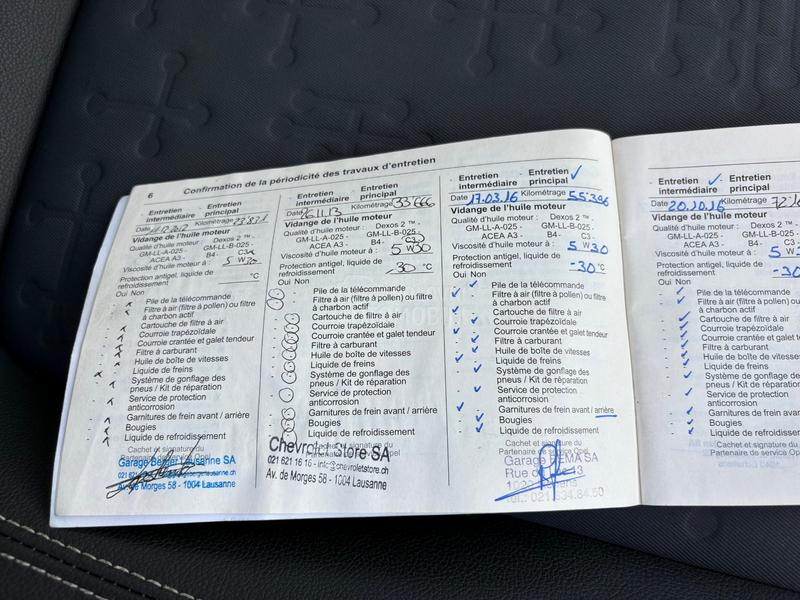 6 Confirmation de la périodicité des travaux d'entretien
Entretien intermédiaire Entretien principal
Date Kilométrage
Vidange de l'huile moteur
Qualité d'huile moteur : Dexos 2 ™ -
GM-LL-A-025 - GM-LL-B-025 -
ACEA A3 - B4- C3-
Viscosité d'huile moteur à : 5 W
Protection antigel, liquide de refroidissement °C
Oui Non
Pile de la télécommande
Filtre à air (filtre à pollen) ou filtre à charbon actif
Cartouche de filtre à air
Courroie trapézoïdale
Courroie crantée et galet tendeur
Filtre à carburant
Huile de boîte de vitesses
Liquide de freins
Système de gonflage des pneus / Kit de réparation
Service de protection anticorrosion
Garnitures de frein avant / arrière
Bougies
Liquide de refroidissement
Cachet et signature du
Partenaire de service Opel
Garage Lausanne SA
Av. de Morges 58 - 1004 Lausanne
Entretien intermédiaire Entretien principal
Date 26.11.13 Kilométrage 33'666
Vidange de l'huile moteur
Qualité d'huile moteur : Dexos 2 ™ -
GM-LL-A-025 - GM-LL-B-025 -
ACEA A3 - B4- C3-
Viscosité d'huile moteur à : 5 W30
Protection antigel, liquide de refroidissement -30 °C
Oui Non
Pile de la télécommande
Filtre à air (filtre à pollen) ou filtre à charbon actif
Cartouche de filtre à air
Courroie trapézoïdale
Courroie crantée et galet tendeur
Filtre à carburant
Huile de boîte de vitesses
Liquide de freins
Système de gonflage des pneus / Kit de réparation
Service de protection anticorrosion
Garnitures de frein avant / arrière
Bougies
Liquide de refroidissement
Chevrolet Store SA
021 621 16 16 - info@chevroletstore.ch
Av. de Morges 58 - 1004 Lausanne
Entretien intermédiaire Entretien principal ✓
Date 17.03.16 Kilométrage 55'396
Vidange de l'huile moteur
Qualité d'huile moteur : Dexos 2 ™ -
GM-LL-A-025 - GM-LL-B-025 -
ACEA A3 - B4- C3 -
Viscosité d'huile moteur à : 5 W30
Protection antigel, liquide de refroidissement -30 °C
Oui Non
Pile de la télécommande
Filtre à air (filtre à pollen) ou filtre à charbon actif
Cartouche de filtre à air
Courroie trapézoïdale
Courroie crantée et galet tendeur
Filtre à carburant
Huile de boîte de vitesses
Liquide de freins
Système de gonflage des pneus / Kit de réparation
Service de protection anticorrosion
Garnitures de frein avant / arrière
Bougies
Liquide de refroidissement
Cachet et signature du
Partenaire de service Opel
Garage BEMA SA
Entretien intermédiaire ✓ Entretien principal
Date 20.10.16 Kilométrage
Vidange de l'huile moteur
Qualité d'huile moteur : Dexos 2
GM-LL-A-025 - GM-LL-B-0
ACEA A3 - B4- C3
Viscosité d'huile moteur à : 5 W
Protection antigel, liquide de refroidissement
Oui Non
Pile de la télécommande
Filtre à air (filtre à pollen) ou
à charbon actif
Cartouche de filtre à air
Courroie trapézoïdale
Courroie crantée et galet
Filtre à carburant
Huile de boîte de vitesses
Liquide de freins
Système de gonflage des
pneus / Kit de réparation
Service de protection
anticorrosion
Garnitures de frein avant
Bougies
Liquide de refroidissement
Cachet et signature du
Partenaire de service Opel